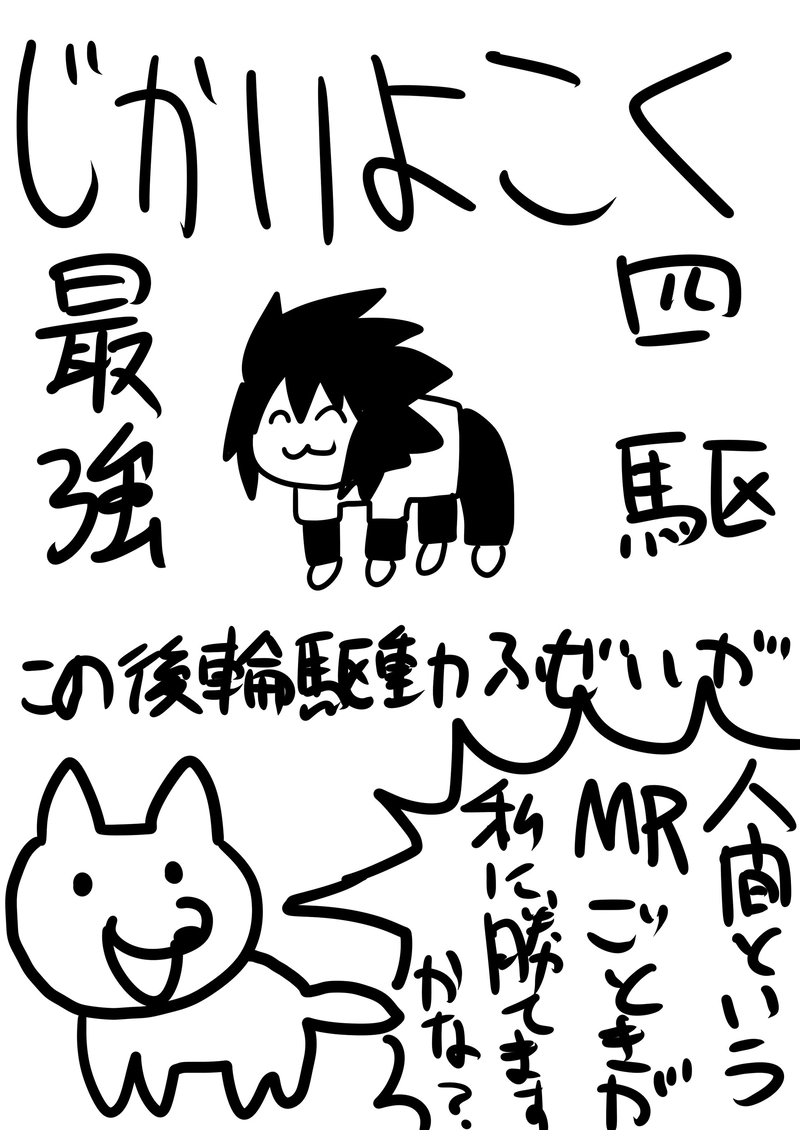 じかいよこく
四駆
最強
この後輪駆動ふぜいが
人間という
MRごときが
私に勝てます
かな?